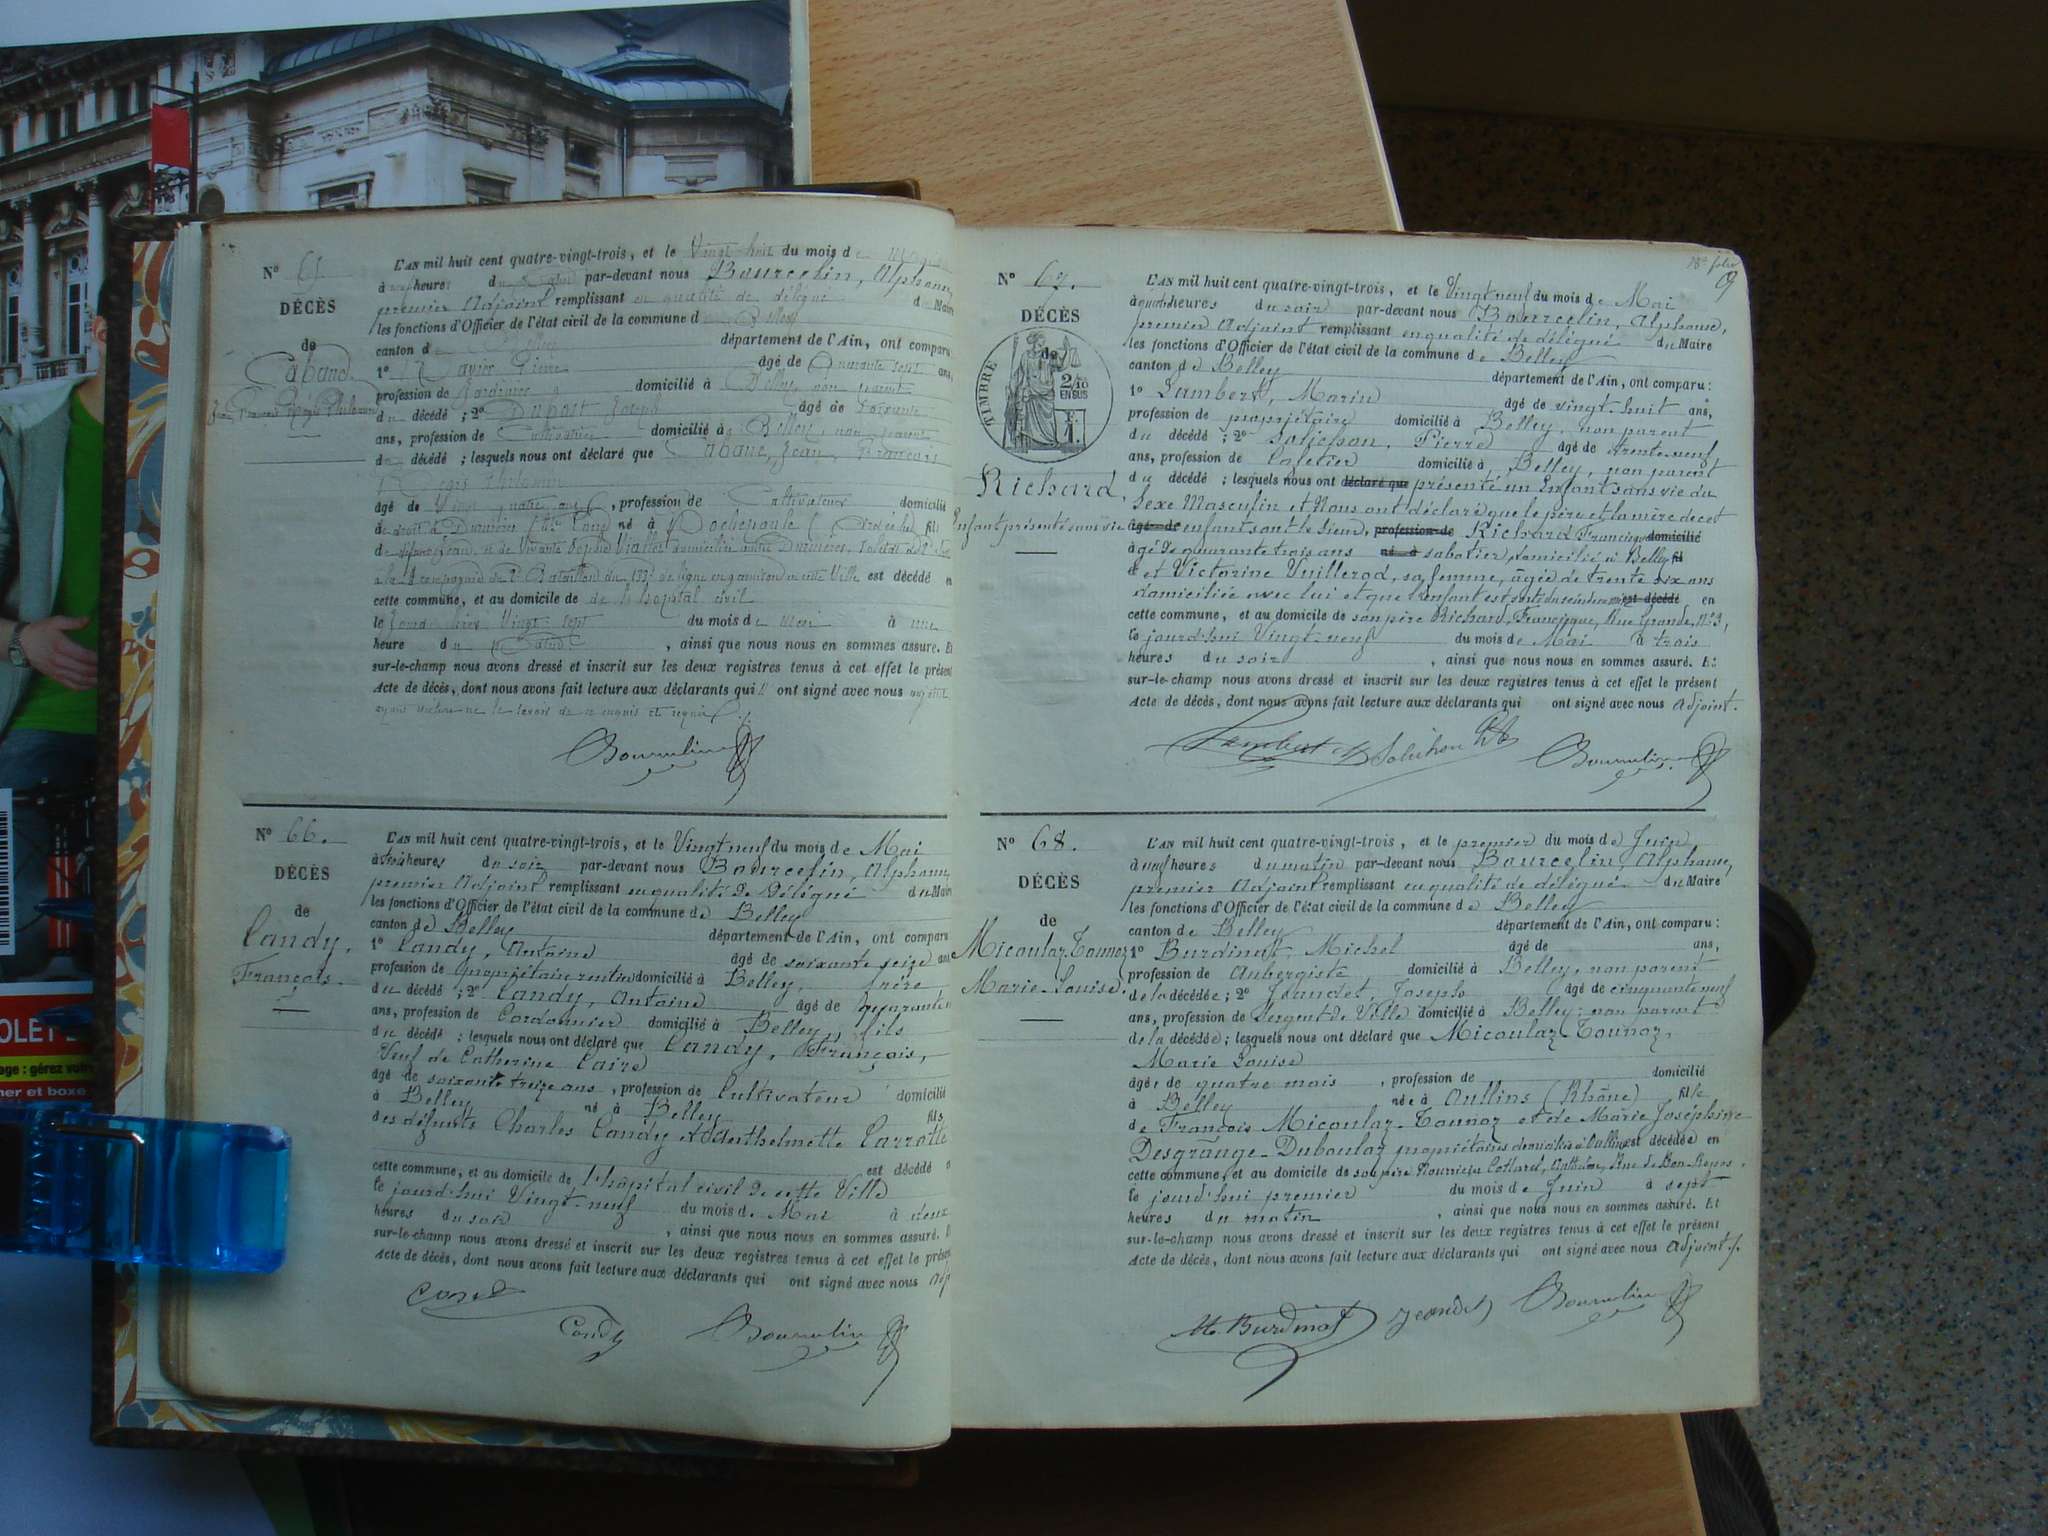 N° 65
DÉCÈS
de
Cabanc
Jean François Régis Philémon
L'AN mil huit cent quatre-vingt-trois, et le Vingt huit du mois de
à heures du par-devant nous Bourcelin, Alphonse,
premier Adjoint remplissant en qualité de délégué du Maire
les fonctions d'Officier de l'état civil de la commune de Belley
canton de Belley département de l'Ain, ont comparu
1° âgé de ans,
profession de Jardinier domicilié à Belley non parent
du décédé ; 2° Dupost Joseph âgé de soixante
ans, profession de Cultivateur domicilié à Belley, non parent
du décédé ; lesquels nous ont déclaré que Cabanc, Jean, François
Régis Philémon
âgé de Vingt quatre ans, profession de Cultivateur domicilié
de droit à Dunières né à Rochepaule (Ardèche) fils
de défunt Jean, et de vivante Sophie Vialles domiciliée audit Dunières, soldat de
à la compagnie du Bataillon du 133e de ligne en garnison en cette Ville est décédé en
cette commune, et au domicile de de l'hôpital civil
le vingt sept du mois de mai à une
heure du matin, ainsi que nous nous en sommes assuré. Et
sur-le-champ nous avons dressé et inscrit sur les deux registres tenus à cet effet le présent
Acte de décès, dont nous avons fait lecture aux déclarants qui ont signé avec nous
ne le savoir de ce enquis et requis
Bourcelin
N° 66.
DÉCÈS
de
Candy,
François.
L'AN mil huit cent quatre-vingt-trois, et le Vingt neuf du mois de Mai
à trois heures du soir par-devant nous Bourcelin, Alphonse,
premier Adjoint remplissant en qualité de Délégué du Maire
les fonctions d'Officier de l'état civil de la commune de Belley
canton de Belley département de l'Ain, ont comparu
1° Candy, Antoine âgé de soixante seize ans
profession de propriétaire rentier domicilié à Belley, frère
du décédé ; 2° Candy, Antoine âgé de quarante
ans, profession de Cordonnier domicilié à Belley, fils
du décédé ; lesquels nous ont déclaré que Candy, François,
Veuf de Catherine Caire
âgé de soixante treize ans, profession de Cultivateur domicilié
à Belley né à Belley fils
des défunts Charles Candy et Anthelmette Carrotte
est décédé
cette commune, et au domicile de l'hôpital civil de cette Ville
le jourd'hui Vingt-neuf du mois de Mai à deux
heures du soir, ainsi que nous nous en sommes assuré.
sur-le-champ nous avons dressé et inscrit sur les deux registres tenus à cet effet le présent
Acte de décès, dont nous avons fait lecture aux déclarants qui ont signé avec nous adj
Candy
Bourcelin
28e folio
N° 67.
DÉCÈS
de
TIMBRE
2/10
EN SUS
Richard,
Enfant présenté sans vie
L'AN mil huit cent quatre-vingt-trois, et le Vingt neuf du mois de Mai
à quatre heures du soir par-devant nous Bourcelin, Alphonse,
premier Adjoint remplissant en qualité de délégué du Maire
les fonctions d'Officier de l'état civil de la commune de Belley
canton de Belley département de l'Ain, ont comparu :
1° Lambert, Marin âgé de vingt-huit ans,
profession de propriétaire domicilié à Belley, non parent
du décédé ; 2° Solichon, Pierre âgé de trente-neuf
ans, profession de Cafetier domicilié à Belley, non parent
du décédé ; lesquels nous ont déclaré que présenté un Enfant sans vie du
Sexe Masculin et Nous ont déclaré que le père et la mère de cet
âgé de enfant sont le sieur, profession de Richard Francisque domicilié
âgé de quarante trois ans né à sabotier, domicilié à Belley fil
d et Victorine Vuillerod, sa femme, âgée de trente six ans
domiciliée avec lui et que l'enfant est sorti du sein de sa mère est décédé en
cette commune, et au domicile de son père Richard, Francisque, Rue Grande, N° 3,
le jourd'hui Vingt-neuf du mois de Mai à trois
heures du soir, ainsi que nous nous en sommes assuré. Et
sur-le-champ nous avons dressé et inscrit sur les deux registres tenus à cet effet le présent
Acte de décès, dont nous avons fait lecture aux déclarants qui ont signé avec nous adjoint.
Lambert Solichon Bourcelin
N° 68.
DÉCÈS
de
Micoulaz-Tounoz
Marie-Louise.
L'AN mil huit cent quatre-vingt-trois, et le premier du mois de Juin
à neuf heures du matin par-devant nous Bourcelin, Alphonse,
premier Adjoint remplissant en qualité de délégué du Maire
les fonctions d'Officier de l'état civil de la commune de Belley
canton de Belley département de l'Ain, ont comparu :
1° Burdinat, Michel âgé de ans,
profession de Aubergiste domicilié à Belley, non parent
de la décédée ; 2° Jeandet, Joseph âgé de cinquante neuf
ans, profession de Sergent de Ville domicilié à Belley, non parent
de la décédée ; lesquels nous ont déclaré que Micoulaz-Tounoz,
Marie Louise
âgée de quatre mois, profession de domicilié
à Belley née à Oullins (Rhône) fille
de François Micoulaz-Tounoz et de Marie Joséphine
Desgrange-Duboulaz propriétaires domiciliés à Oullins est décédée en
cette commune, et au domicile de son père Nourricier Collard, Anthelme, Rue du Bon-Repos,
le jourd'hui premier du mois de Juin à sept
heures du matin, ainsi que nous nous en sommes assuré. Et
sur-le-champ nous avons dressé et inscrit sur les deux registres tenus à cet effet le présent
Acte de décès, dont nous avons fait lecture aux déclarants qui ont signé avec nous adjoint.
M. Burdinat Jeandet Bourcelin